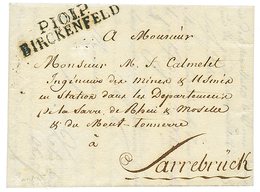 P101P
BIRCKENFELD
A Monsieur
Monsieur M. J. Calmelet
Ingénieur des mines & Usines
en Station dans les Départemens
de la Sarre, de Rhin & Moselle
& du Mont-tonnerre
à
Sarrebrück